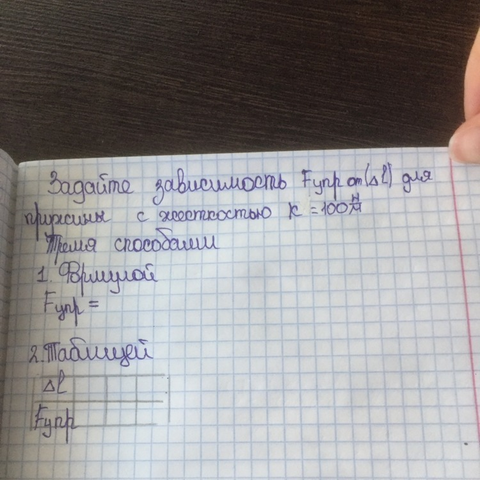 Задайте зависимость Fупр от (Δl) для
пружины с жесткостью k = 100 Н/м
тремя способами
1. Формулой
Fупр =
2. Таблицей
Δl
Fупр